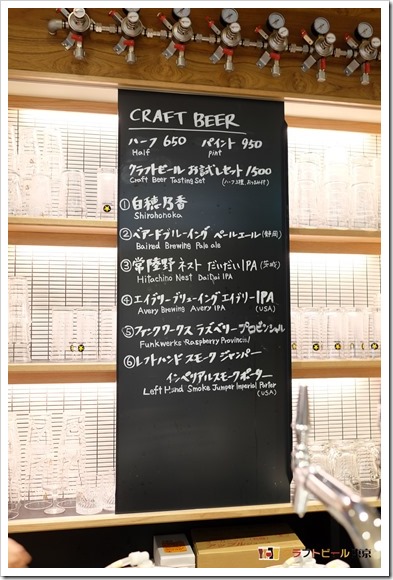 CRAFT BEER
ハーフ 650 パイント 950
Half Pint
クラフトビール お試しセット 1500
Craft Beer Tasting Set
① 白穂乃香
Shirohonoka
② ベアードブルーイング ペールエール (静岡)
Baired Brewing Pale ale
③ 常陸野 ネスト だいだい IPA (茨城)
Hitachino Nest Daidai IPA
④ エイブリーブリューイング エイブリーIPA
Avery Brewing Avery IPA (USA)
⑤ ファンクワークス ラズベリー プロビンシャル
Funkwerks Raspberry Provincial
⑥ レフトハンド スモーク ジャンパー
インペリアルスモークポーター
Left Hand Smoke Jumper Imperial Porter
(USA)